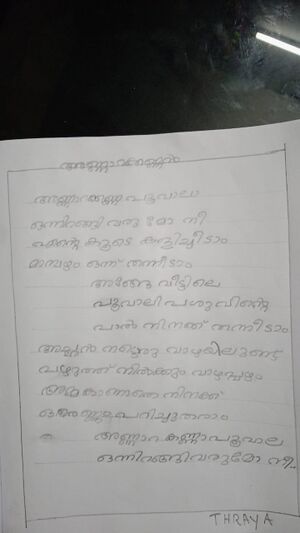 അണ്ണാറക്കണ്ണൻ
അണ്ണാറക്കണ്ണാ പൂവാലാ
ഒന്നിറങ്ങി വരുമോ നീ
എന്റെ കൂടെ കളിച്ചീടാം
മാമ്പഴം ഒന്ന് തന്നീടാം
അങ്ങേ വീട്ടിലെ
പൂവാലി പശുവിന്റെ
പാൽ നിനക്ക് തന്നീടാം
അച്ഛൻ നട്ടൊരു വാഴയിലുണ്ട്
പഴുത്ത് നിൽക്കും വാഴപ്പഴം
അമ്മ കാണാതെ നിനക്ക്
ഒരെണ്ണം പറിച്ചു തരാം
അണ്ണാറക്കണ്ണാ പൂവാല
ഒന്നിറങ്ങിവരുമോ നീ..
THRAYA